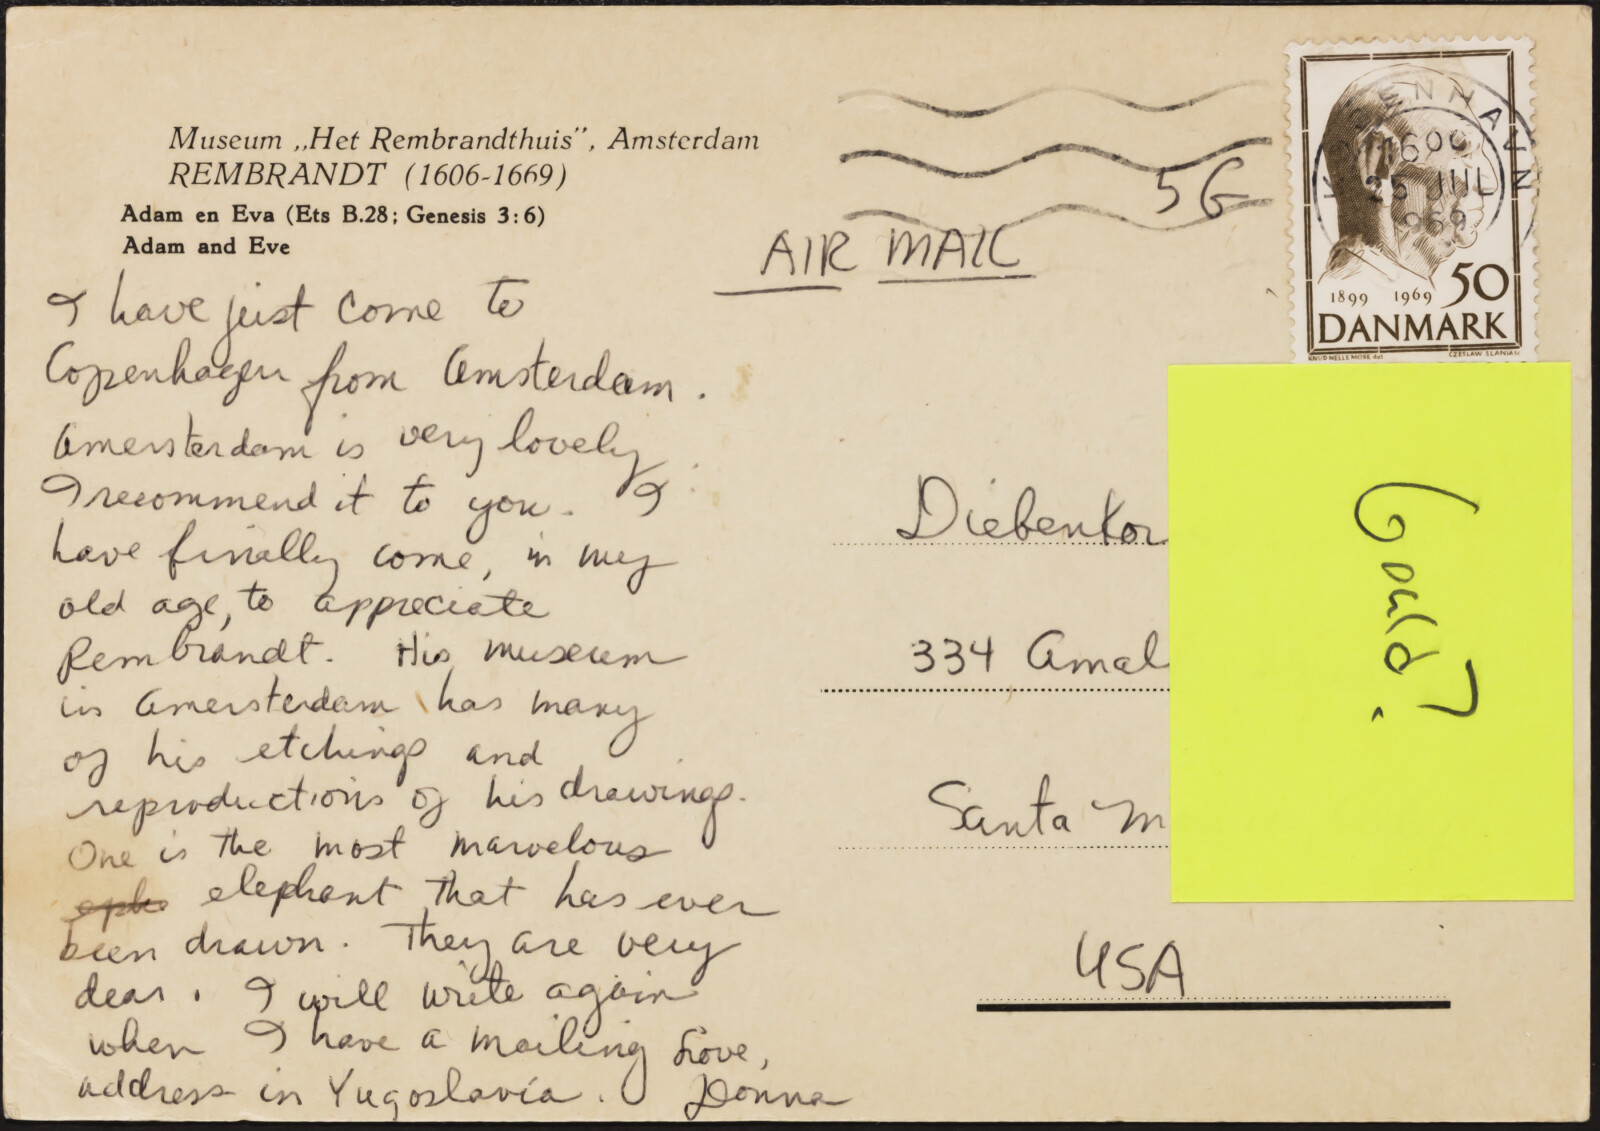 Museum „Het Rembrandthuis”, Amsterdam
REMBRANDT (1606-1669)
Adam en Eva (Ets B.28; Genesis 3:6)
Adam and Eve
I have just come to
Copenhagen from Amsterdam.
Amersterdam is very lovely
I recommend it to you. I
have finally come, in my
old age, to appreciate
Rembrandt. His museum
in Amersterdam has many
of his etchings and
reproductions of his drawings.
One is the most marvelous
elephant that has ever
been drawn. They are very
dear. I will write again
when I have a mailing
address in Yugoslavia.
Love,
Donna
5G
AIR MAIL
KØBENHAVN
1600
25 JUL
1969
1899 1969 50
DANMARK
CZESLAW SLANIA sc
Diebenkor
334 Amal
Santa M
USA